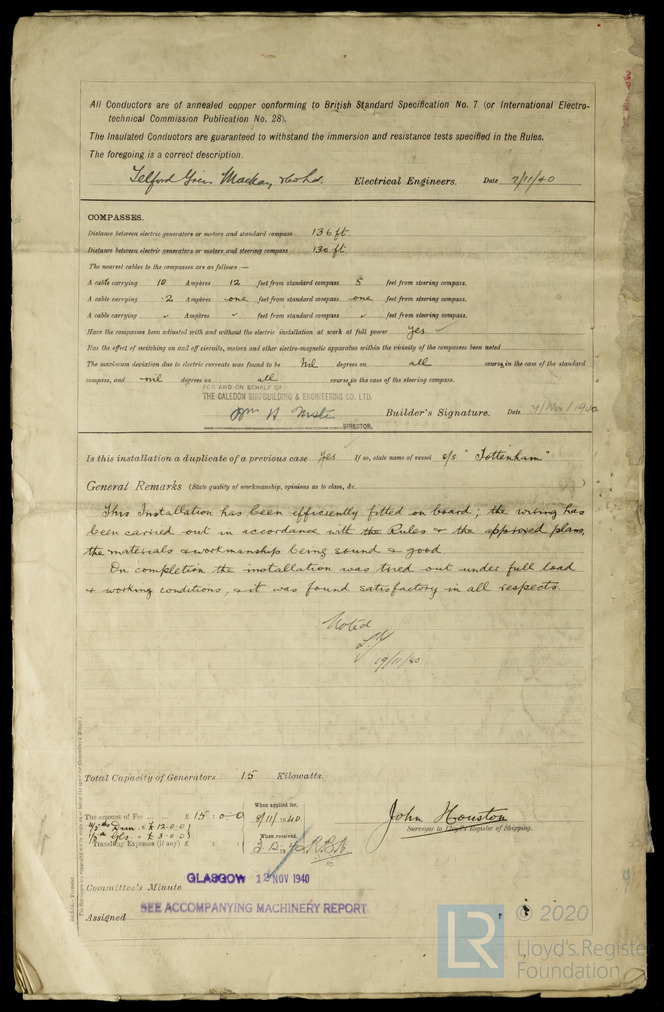 All Conductors are of annealed copper conforming to British Standard Specification No. 7 (or International Electro-
technical Commission Publication No. 28).
The Insulated Conductors are guaranteed to withstand the immersion and resistance tests specified in the Rules.
The foregoing is a correct description.
Telford Grier Mackay & Co Ld. Electrical Engineers. Date 7/11/40
COMPASSES.
Distance between electric generators or motors and standard compass 136 ft.
Distance between electric generators or motors and steering compass 130 ft.
The nearest cables to the compasses are as follows:—
A cable carrying 10 Ampères 12 feet from standard compass 5 feet from steering compass.
A cable carrying .2 Ampères one feet from standard compass one feet from steering compass.
A cable carrying Ampères feet from standard compass feet from steering compass.
Have the compasses been adjusted with and without the electric installation at work at full power Yes
Has the effect of switching on and off circuits, motors and other electro-magnetic apparatus within the vicinity of the compasses been noted
The maximum deviation due to electric currents was found to be Nil degrees on all course in the case of the standard
compass, and nil degrees on all course in the case of the steering compass.
FOR AND ON BEHALF OF
THE CALEDON SHIPBUILDING & ENGINEERING CO. LTD.
Builder's Signature. Date 4/Nov/1940
DIRECTOR.
Is this installation a duplicate of a previous case Yes If so, state name of vessel s/s "Tottenham"
General Remarks (State quality of workmanship, opinions as to class, &c.
This Installation has been efficiently fitted on board; the wiring has
been carried out in accordance with the Rules & the approved plans,
the materials & workmanship being sound & good.
On completion the installation was tried out under full load
& working conditions, & it was found satisfactory in all respects.
Noted
19/11/40
Total Capacity of Generators 15 Kilowatts.
The amount of Fee ... ... £ 15:0:0
4/5ths Dun = £ 12.0.0
1/5th Gls = £ 3.0.0
Travelling Expenses (if any) £ : :
When applied for,
9/11/1940
When received,
John Houston
Surveyor to Lloyd's Register of Shipping.
GLASGOW 12 NOV 1940
Committee's Minute
SEE ACCOMPANYING MACHINERY REPORT.
Assigned
LR
© 2020
Lloyd's Register
Foundation